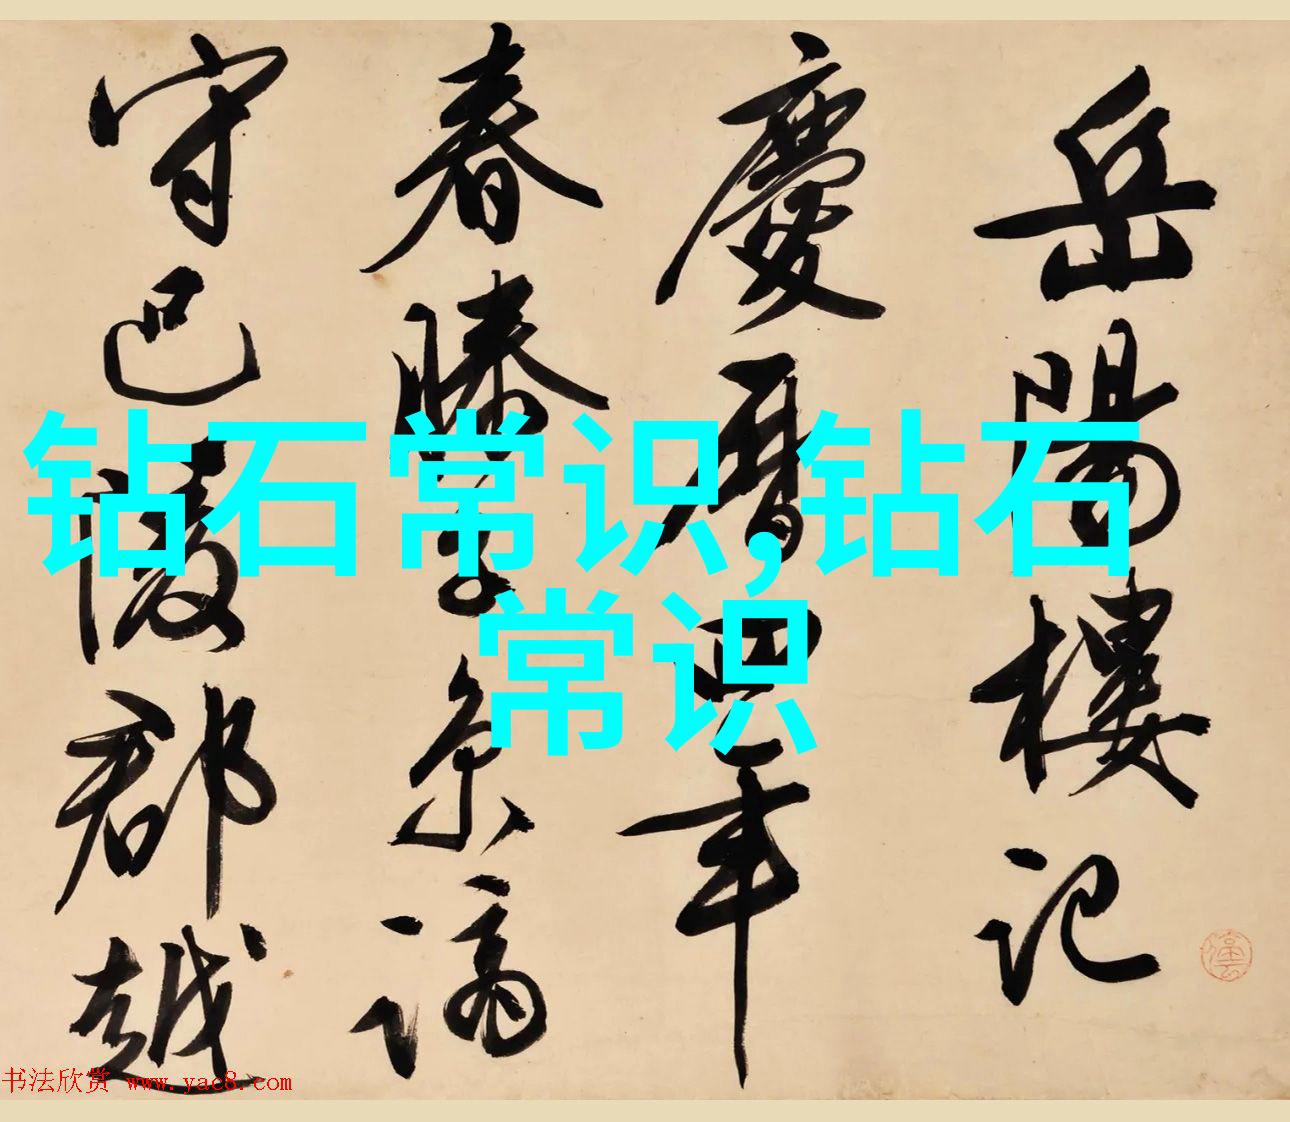 岳陽樓記
慶曆四年
春滕子京謫
守巴陵郡越
钻石常识,钻石
常识
书法欣赏 www.yac8.com